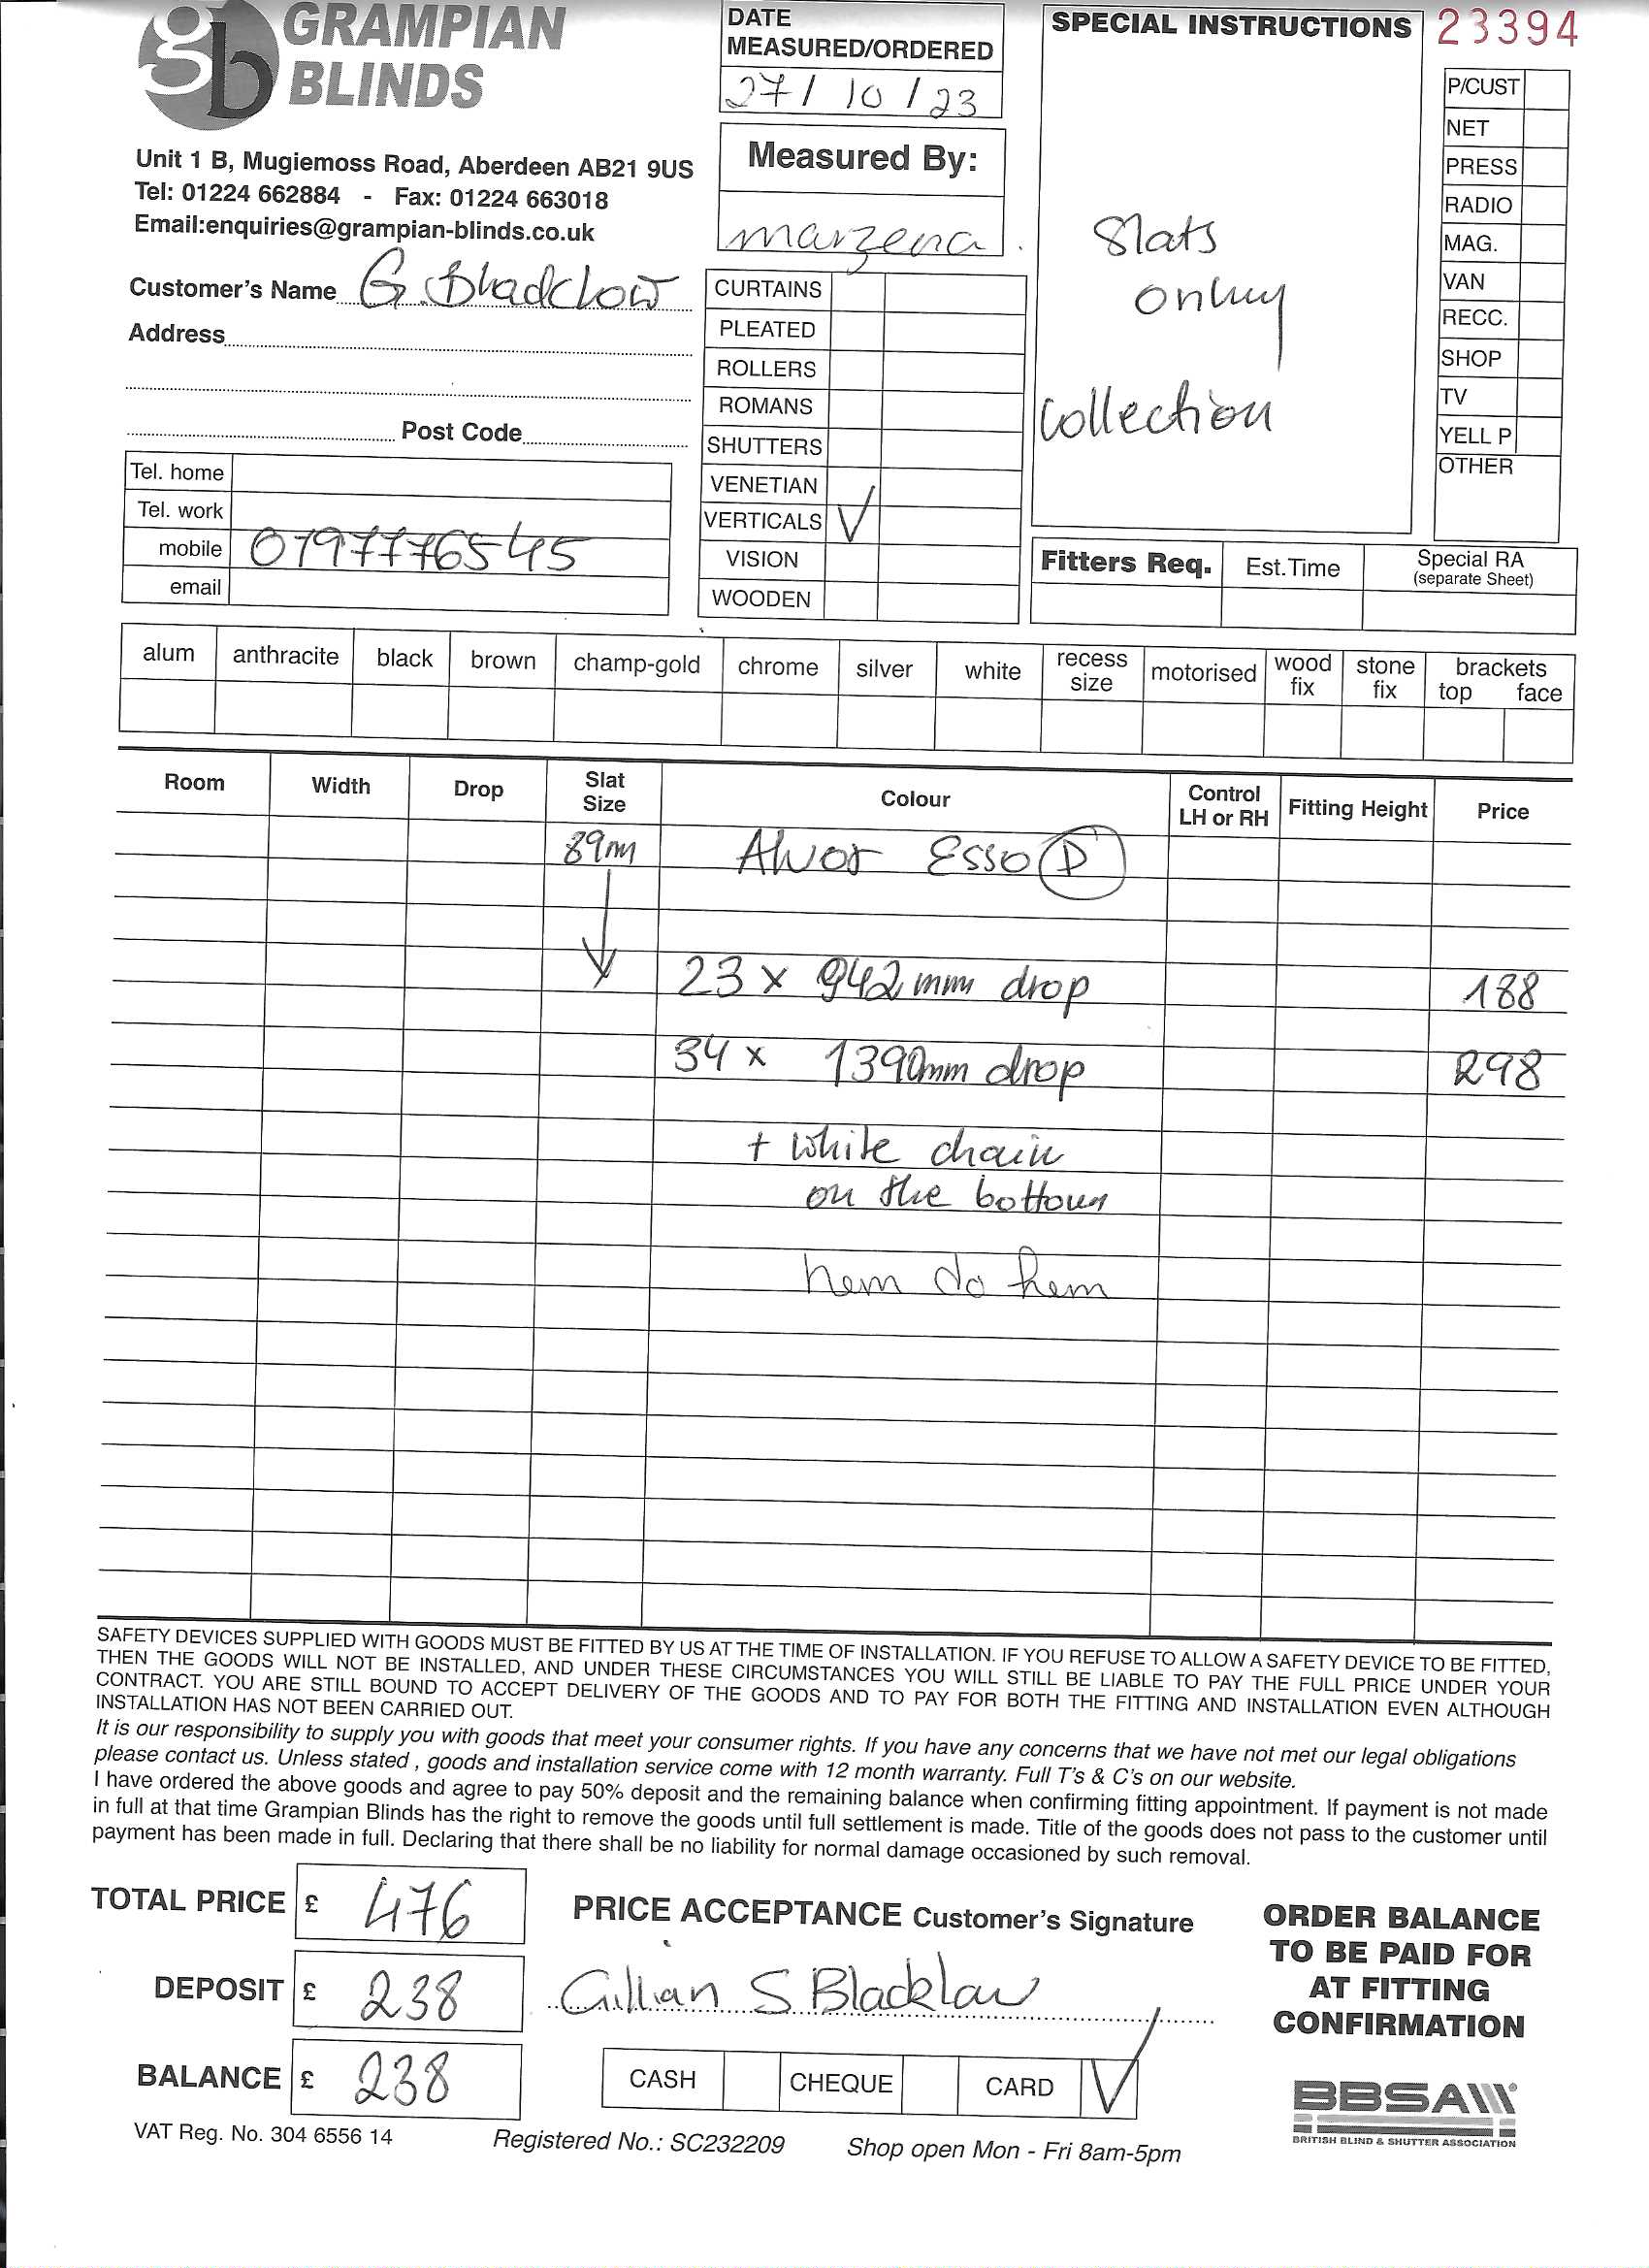 gb GRAMPIAN
BLINDS
Unit 1 B, Mugiemoss Road, Aberdeen AB21 9US
Tel: 01224 662884 - Fax: 01224 663018
Email:enquiries@grampian-blinds.co.uk
Customer's Name G. Blacklow
Address
Post Code
Tel. home
Tel. work
mobile 07977776545
email
DATE
MEASURED/ORDERED
27/10/23
Measured By:
marzena.
CURTAINS
PLEATED
ROLLERS
ROMANS
SHUTTERS
VENETIAN
VERTICALS ✓
VISION
WOODEN
SPECIAL INSTRUCTIONS
Slats
only
collection
23394
P/CUST
NET
PRESS
RADIO
MAG.
VAN
RECC.
SHOP
TV
YELL P
OTHER
Fitters Req. Est.Time Special RA
(separate Sheet)
alum anthracite black brown champ-gold chrome silver white recess size motorised wood fix stone fix brackets top face
Room Width Drop Slat Size Colour Control LH or RH Fitting Height Price
89mm Alvor Esso D
23 x 942mm drop 188
34 x 1390mm drop 298
+ white chain
on the bottom
hem do hem
SAFETY DEVICES SUPPLIED WITH GOODS MUST BE FITTED BY US AT THE TIME OF INSTALLATION. IF YOU REFUSE TO ALLOW A SAFETY DEVICE TO BE FITTED,
THEN THE GOODS WILL NOT BE INSTALLED, AND UNDER THESE CIRCUMSTANCES YOU WILL STILL BE LIABLE TO PAY THE FULL PRICE UNDER YOUR
CONTRACT. YOU ARE STILL BOUND TO ACCEPT DELIVERY OF THE GOODS AND TO PAY FOR BOTH THE FITTING AND INSTALLATION EVEN ALTHOUGH
INSTALLATION HAS NOT BEEN CARRIED OUT.
It is our responsibility to supply you with goods that meet your consumer rights. If you have any concerns that we have not met our legal obligations
please contact us. Unless stated , goods and installation service come with 12 month warranty. Full T's & C's on our website.
I have ordered the above goods and agree to pay 50% deposit and the remaining balance when confirming fitting appointment. If payment is not made
in full at that time Grampian Blinds has the right to remove the goods until full settlement is made. Title of the goods does not pass to the customer until
payment has been made in full. Declaring that there shall be no liability for normal damage occasioned by such removal.
TOTAL PRICE £ 476
DEPOSIT £ 238
BALANCE £ 238
PRICE ACCEPTANCE Customer's Signature
Gillian S Blacklaw
CASH CHEQUE CARD ✓
ORDER BALANCE
TO BE PAID FOR
AT FITTING
CONFIRMATION
BBSA
BRITISH BLIND & SHUTTER ASSOCIATION
VAT Reg. No. 304 6556 14 Registered No.: SC232209 Shop open Mon - Fri 8am-5pm